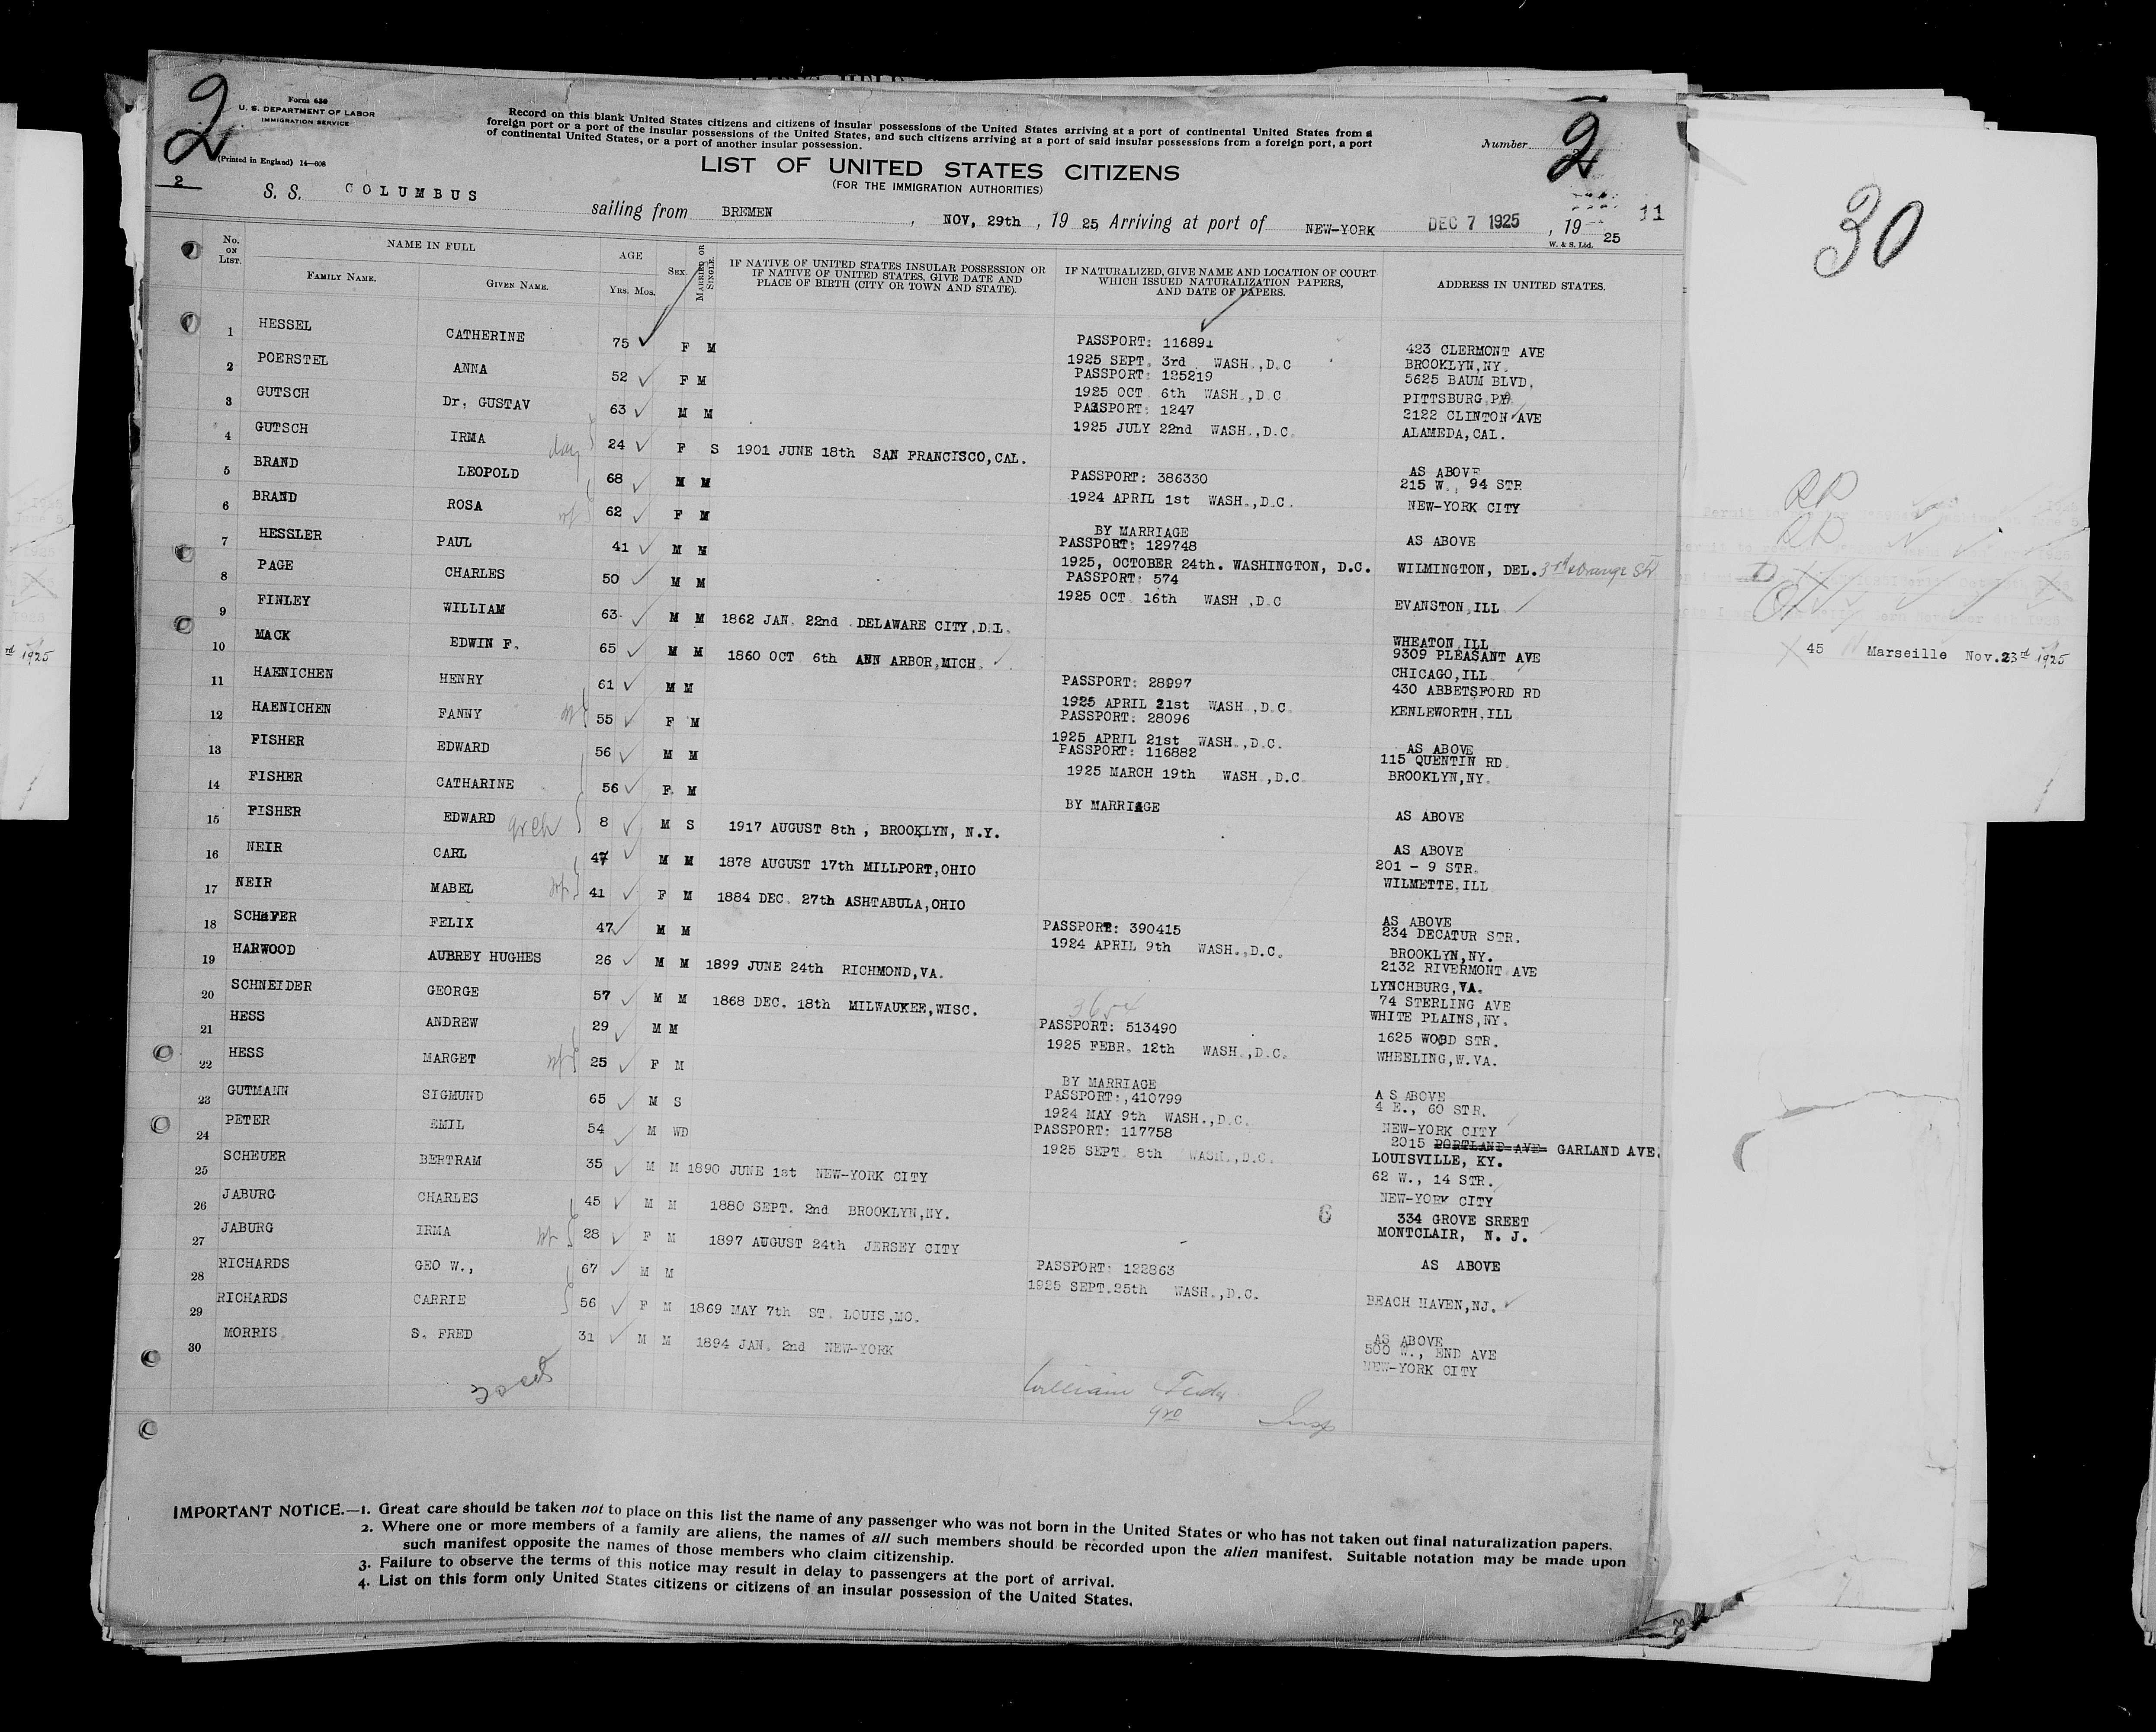 2
Form 630
U. S. DEPARTMENT OF LABOR
IMMIGRATION SERVICE
(Printed in England) 14—608
2
Record on this blank United States citizens and citizens of insular possessions of the United States arriving at a port of continental United States from a
foreign port or a port of the insular possessions of the United States, and such citizens arriving at a port of said insular possessions from a foreign port, a port
of continental United States, or a port of another insular possession.
Number 2
LIST OF UNITED STATES CITIZENS
(FOR THE IMMIGRATION AUTHORITIES)
S. S. COLUMBUS sailing from BREMEN, NOV, 29th, 19 25, Arriving at port of NEW-YORK DEC 7 1925, 19 25
11
W. & S. Ltd.
No. ON LIST. NAME IN FULL AGE SEX. MARRIED OR SINGLE. IF NATIVE OF UNITED STATES INSULAR POSSESSION OR IF NATIVE OF UNITED STATES, GIVE DATE AND PLACE OF BIRTH (CITY OR TOWN AND STATE). IF NATURALIZED, GIVE NAME AND LOCATION OF COURT WHICH ISSUED NATURALIZATION PAPERS, AND DATE OF PAPERS. ADDRESS IN UNITED STATES.
FAMILY NAME. GIVEN NAME. Yrs. Mos.
1 HESSEL CATHERINE 75 F M PASSPORT: 116891 1925 SEPT. 3rd. WASH.,D.C 423 CLERMONT AVE BROOKLYN,NY.
2 POERSTEL ANNA 52 F M PASSPORT: 125219 1925 OCT 6th WASH.,D.C 5625 BAUM BLVD, PITTSBURG,PA
3 GUTSCH Dr. GUSTAV 63 M M PASSPORT: 1247 1925 JULY 22nd WASH.,D.C. 2122 CLINTON AVE ALAMEDA,CAL.
4 GUTSCH IRMA 24 F S 1901 JUNE 18th SAN FRANCISCO,CAL. AS ABOVE
5 BRAND LEOPOLD 68 M M PASSPORT: 386330 1924 APRIL 1st WASH.,D.C. 215 W., 94 STR NEW-YORK CITY
6 BRAND ROSA wf 62 F M BY MARRIAGE AS ABOVE
7 HESSLER PAUL 41 M M PASSPORT: 129748 1925, OCTOBER 24th. WASHINGTON, D.C. WILMINGTON, DEL. 3rd & Orange St
8 PAGE CHARLES 50 M M PASSPORT: 574 1925 OCT 16th WASH ,D.C EVANSTON,ILL
9 FINLEY WILLIAM 63 M M 1862 JAN. 22nd DELAWARE CITY,D.I. WHEATON,ILL
10 MACK EDWIN F. 65 M M 1860 OCT 6th ANN ARBOR,MICH. 9309 PLEASANT AVE CHICAGO,ILL
11 HAENICHEN HENRY 61 M M PASSPORT: 28997 1925 APRIL 21st WASH.,D.C. 430 ABBETSFORD RD KENLEWORTH,ILL
12 HAENICHEN FANNY wf 55 F M PASSPORT: 28096 1925 APRIL 21st WASH.,D.C. AS ABOVE
13 FISHER EDWARD 56 M M PASSPORT: 116882 1925 MARCH 19th WASH.,D.C. 115 QUENTIN RD. BROOKLYN,NY.
14 FISHER CATHARINE 56 F. M BY MARRIAGE AS ABOVE
15 FISHER EDWARD 8 M S 1917 AUGUST 8th , BROOKLYN, N.Y. AS ABOVE
16 NEIR CARL 47 M M 1878 AUGUST 17th MILLPORT,OHIO 201 - 9 STR. WILMETTE,ILL
17 NEIR MABEL wf 41 F M 1884 DEC. 27th ASHTABULA,OHIO AS ABOVE
18 SCHAFER FELIX 47 M M PASSPORT: 390415 1924 APRIL 9th WASH.,D.C. 234 DECATUR STR. BROOKLYN,NY.
19 HARWOOD AUBREY HUGHES 26 M M 1899 JUNE 24th RICHMOND,VA. 2132 RIVERMONT AVE LYNCHBURG,VA.
20 SCHNEIDER GEORGE 57 M M 1868 DEC. 18th MILWAUKEE,WISC. 74 STERLING AVE WHITE PLAINS,NY.
21 HESS ANDREW 29 M M PASSPORT: 513490 1925 FEBR. 12th WASH.,D.C. 1625 WOOD STR. WHEELING,W.VA.
22 HESS MARGET wf 25 F M BY MARRIAGE AS ABOVE
23 GUTMANN SIGMUND 65 M S PASSPORT:,410799 1924 MAY 9th WASH.,D.C. 4 E., 60 STR. NEW-YORK CITY
24 PETER EMIL 54 M WD PASSPORT: 117758 1925 SEPT. 8th WASH.,D.C. 2015 PORTLAND AVE GARLAND AVE. LOUISVILLE, KY.
25 SCHEUER BERTRAM 35 M M 1890 JUNE 1st NEW-YORK CITY 62 W., 14 STR. NEW-YORK CITY
26 JABURG CHARLES 45 M M 1880 SEPT. 2nd BROOKLYN,NY. 6 334 GROVE SREET MONTCLAIR, N. J.
27 JABURG IRMA wf 28 F M 1897 AUGUST 24th JERSEY CITY AS ABOVE
28 RICHARDS GEO W., 67 M M PASSPORT: 122863 1925 SEPT.25th WASH.,D.C. BEACH HAVEN,NJ.
29 RICHARDS CARRIE 56 F M 1869 MAY 7th ST. LOUIS,MO. AS ABOVE
30 MORRIS. S. FRED 31 M M 1894 JAN. 2nd NEW-YORK 500 W., END AVE NEW-YORK CITY
William
Insp
IMPORTANT NOTICE.—1. Great care should be taken not to place on this list the name of any passenger who was not born in the United States or who has not taken out final naturalization papers.
2. Where one or more members of a family are aliens, the names of all such members should be recorded upon the alien manifest. Suitable notation may be made upon
such manifest opposite the names of those members who claim citizenship.
3. Failure to observe the terms of this notice may result in delay to passengers at the port of arrival.
4. List on this form only United States citizens or citizens of an insular possession of the United States.
30
45 Marseille Nov.23rd 1925
rd 1925